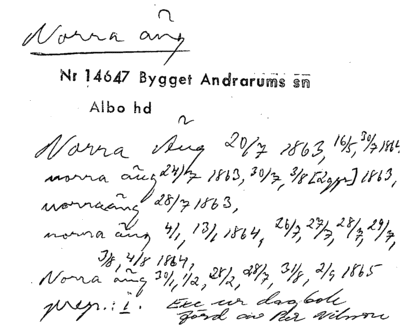 Norra äng
Nr 14647 Bygget Andrarums sn
Albo hd
Norra Äng 20/7 1863, 16/5, 30/7 1864
norra äng 24/7 1863, 30/7, 3/8 [2 ggr] 1863,
norraäng 28/7 1863,
norra äng 4/1, 13/6 1864, 26/7, 27/7, 28/7, 29/7,
3/8, 4/8 1864,
Norra äng 30/1, 1/2, 28/2, 28/7, 31/8, 2/9 1865
prep.: i. Exc ur dagbok
förd av Per Nilsson